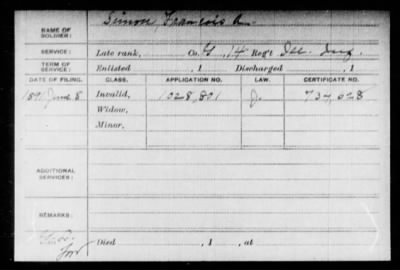 NAME OF SOLDIER: Simon, Francois A.
SERVICE: Late rank, Co. G, 14 Reg't Ill. Inf.
TERM OF SERVICE: Enlisted , 1 Discharged , 1
DATE OF FILING. CLASS. APPLICATION NO. LAW. CERTIFICATE NO.
1891 June 8 Invalid, 1028,801 J. 734,628
Widow,
Minor,
ADDITIONAL SERVICES:
REMARKS:
Died , 1 , at